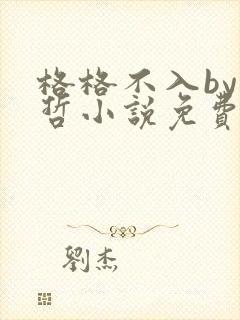 格格不入by
哲小說免費
劉杰